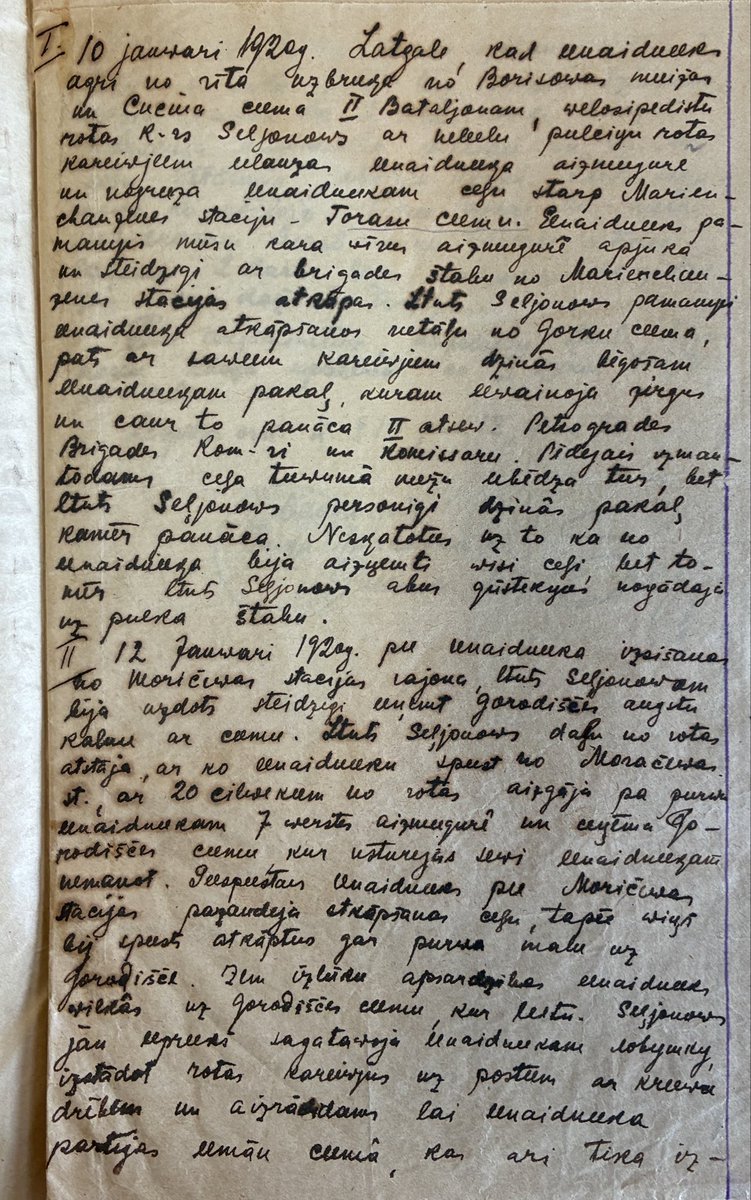 I. 10 janwari 1920g. Latgalē, kad eenaidneeks
agri no rīta uzbruka no Borisowas muižas
un Cucina ceema II Bataljonam, welosipedistu
rotas k-rs Seļjonows ar nelielu pulciņu rotas
kareiwjeem eelauzās eenaidneeka aizmugurē
un nogreeza eenaidneekam ceļu starp Marien-
chauzenes staciju - Torasu ceemu. Eenaidneeks pa-
manijis mūsu kara wīrus aizmugurē apjuka
un steidzīgi ar brigades štabu no Marienchau-
zenes stacijas atkāpās. Ltnts Seļjonows pamanijis
eenaidneeka atkāpšanos netāļu no Gorku ceema,
pats ar saweem kareiwjeem dzinās bēgošam
eenaidneekam pakaļ, kuram eewainoja zirgus
un caur to panāca II atsew. Petrogrades
Brigades Kom-ri un Komissaru. Pēdejais izman-
todams ceļa tuwumā mežu eebēdza tur, bet
ltnts Seļjonows personīgi dzinās pakaļ,
kamēr panāca. Neskatotees uz to ka no
eenaidneeka bija aizņemti wisi ceļi bet to-
mēr ltnts Seļjonows abus gūstekņus nogādaja
uz pulka štabu.
II 12 Janwari 1920g. pee eenaidneeka izsišanas
no Moričewas stacijas rajona, ltnts Seļjonowam
bija uzdots steidzīgi eeņemt Gorodiščes augstu
kalnu ar ceemu. Ltnts Seļjonows daļu no rotas
atstāja, ar ko eenaidneeku speest no Moračewas
st., ar 20 cilwekeem no rotas aizgāja pa purwu
eenaidneekam 7 werstes aizmugurē un eeņēma Go-
rodiščes ceemu, kur usturejās sewi eenaidneekam
nemanot. Peespeestais eenaidneeks pee Moričewas
stacijas pazaudeja atkāpšanas ceļu, tapēc wiņš
bij speests atkāptees gar purwa malu uz
Gorodišče. Zem izlūku apsardzības eenaidneeks
wilkās uz Gorodiščes ceemu, kur leitn. Seļjonows
jau eepreekš sagatawoja eenaidneekam
izstādot rotas kareiwjus uz posteem ar kreewu
drēbēm un aizrādīdams lai eenaidneeka
partijas eenāk ceemā, kas arī tika iz-